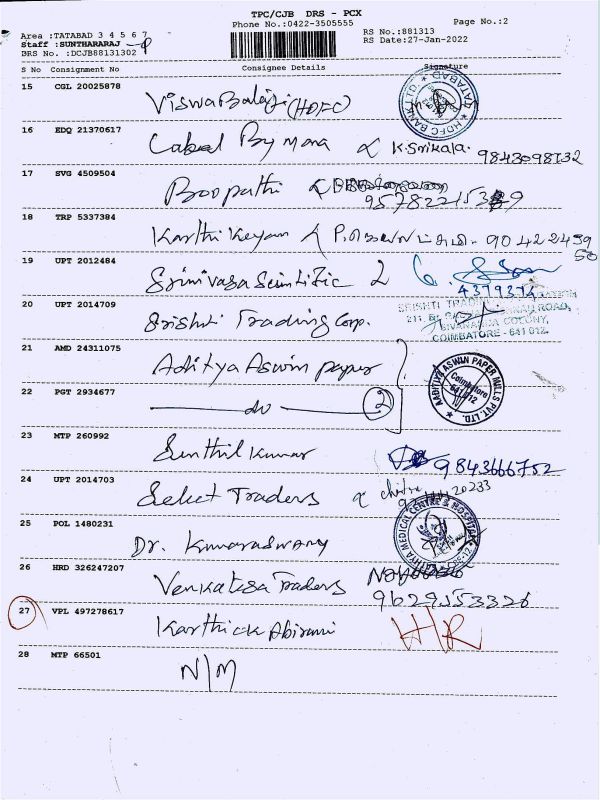 TPC/CJB DRS - PCX
Phone No.:0422-3505555
Page No.:2
Area :TATABAD 3 4 5 6 7
RS No.:881313
Staff :SUNTHARARAJ
RS Date:27-Jan-2022
DRS No. :DCJB88131302
S No Consignment No Consignee Details Signature
15 CGL 20025878
Viswa Balaji (HDFC)
HDFC BANK LTD TATABAD
16 EDQ 21370617
K. Srikala. 9843098132
17 SVG 4509504
Boopathi
18 TRP 5337384
Karthikeyan
19 UPT 2012484
Srinivasa Scintific 2
4379374
20 UPT 2014709
Srishti Trading Corp.
SRISHTI TRADING
SIVANANDA COLONY,
COIMBATORE - 641 012.
21 AMD 24311075
Aditya Aswin paper
AADITYA ASWIN PAPER MILLS PVT. LTD.
Coimbatore
641 012
22 PGT 2934677
do 2
23 MTP 260992
Senthil Kumar
9843666752
24 UPT 2014703
Select Traders
25 POL 1480231
Dr. Kumaraswamy
MEDICAL CENTRE & HOSPITAL
26 HRD 326247207
Venkatesa Traders
9629553326
27 VPL 497278617
Karthick Abirami H/R
28 MTP 66501
N/M